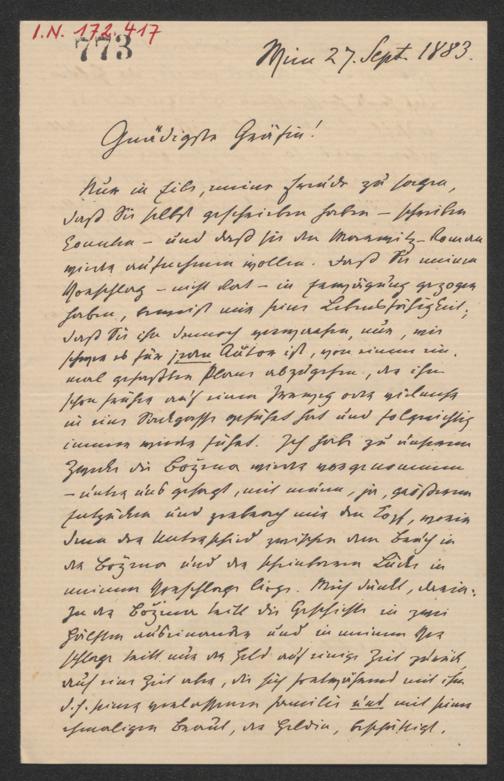 I.N. 172.417
773
Wien 27. Sept. 1883.
Gnädigste Gräfin!
Nur in Eile, meine Freude zu sagen,
daß Sie selbst geschrieben haben – schreiben
konnten – und daß Sie den Roman
wieder aufnehmen wollen. Daß Sie meinen
Vorschlag – nicht Rat – in Erwägung gezogen
haben, beweist mir seine Lebensfähigkeit;
daß Sie ihn dennoch verwerfen, nur, wie
schwer es für jeden Autor ist, von einem ein-
mal gefaßten Plane abzugehen, der ihn
schon früher auf einen Irrweg oder vielmehr
in eine Sackgasse geführt hat und folgerichtig
immer wieder führt. Ich habe zu unserem
Zwecke die Božena wieder vorgenommen
– unter uns gesagt, mit neuem, ja, größerem
Entzücken und zerbrach mir den Kopf, worin
denn der Unterschied zwischen dem Bruch in
der Božena und der scheinbaren Lücke in
meinem Vorschlage liege. Mich dünkt, darin:
In der Božena fällt die Geschichte in zwei
Hälften auseinander und in meinem Vor
schlage tritt nur der Held auf einige Zeit zurück,
auf eine Zeit aber, die sich fortwährend mit ihm
d.h. seiner verlassenen Familie und mit seiner
ehmaligen Braut, der Heldin, beschäftigt.